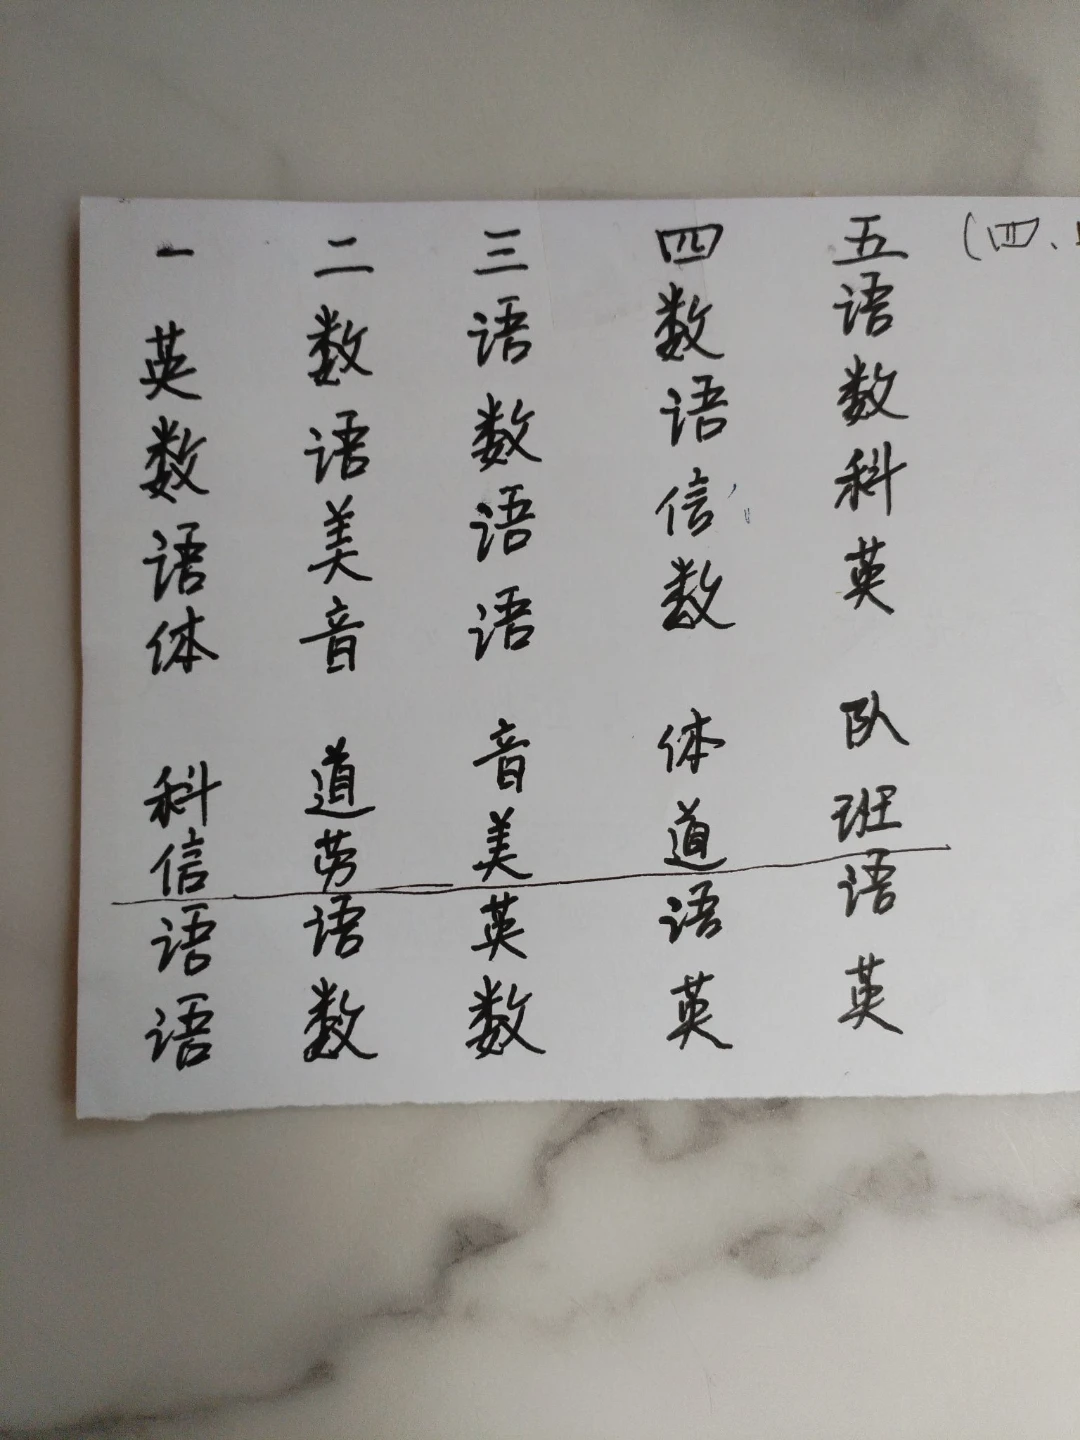 一 二 三 四 五 (四、
英 数 语 数 语
数 语 数 语 数
语 美 语 信 科
体 音 语 数 英
科 道 音 体 队
信 劳 美 道 班
语 语 英 语 语
语 数 数 英 英